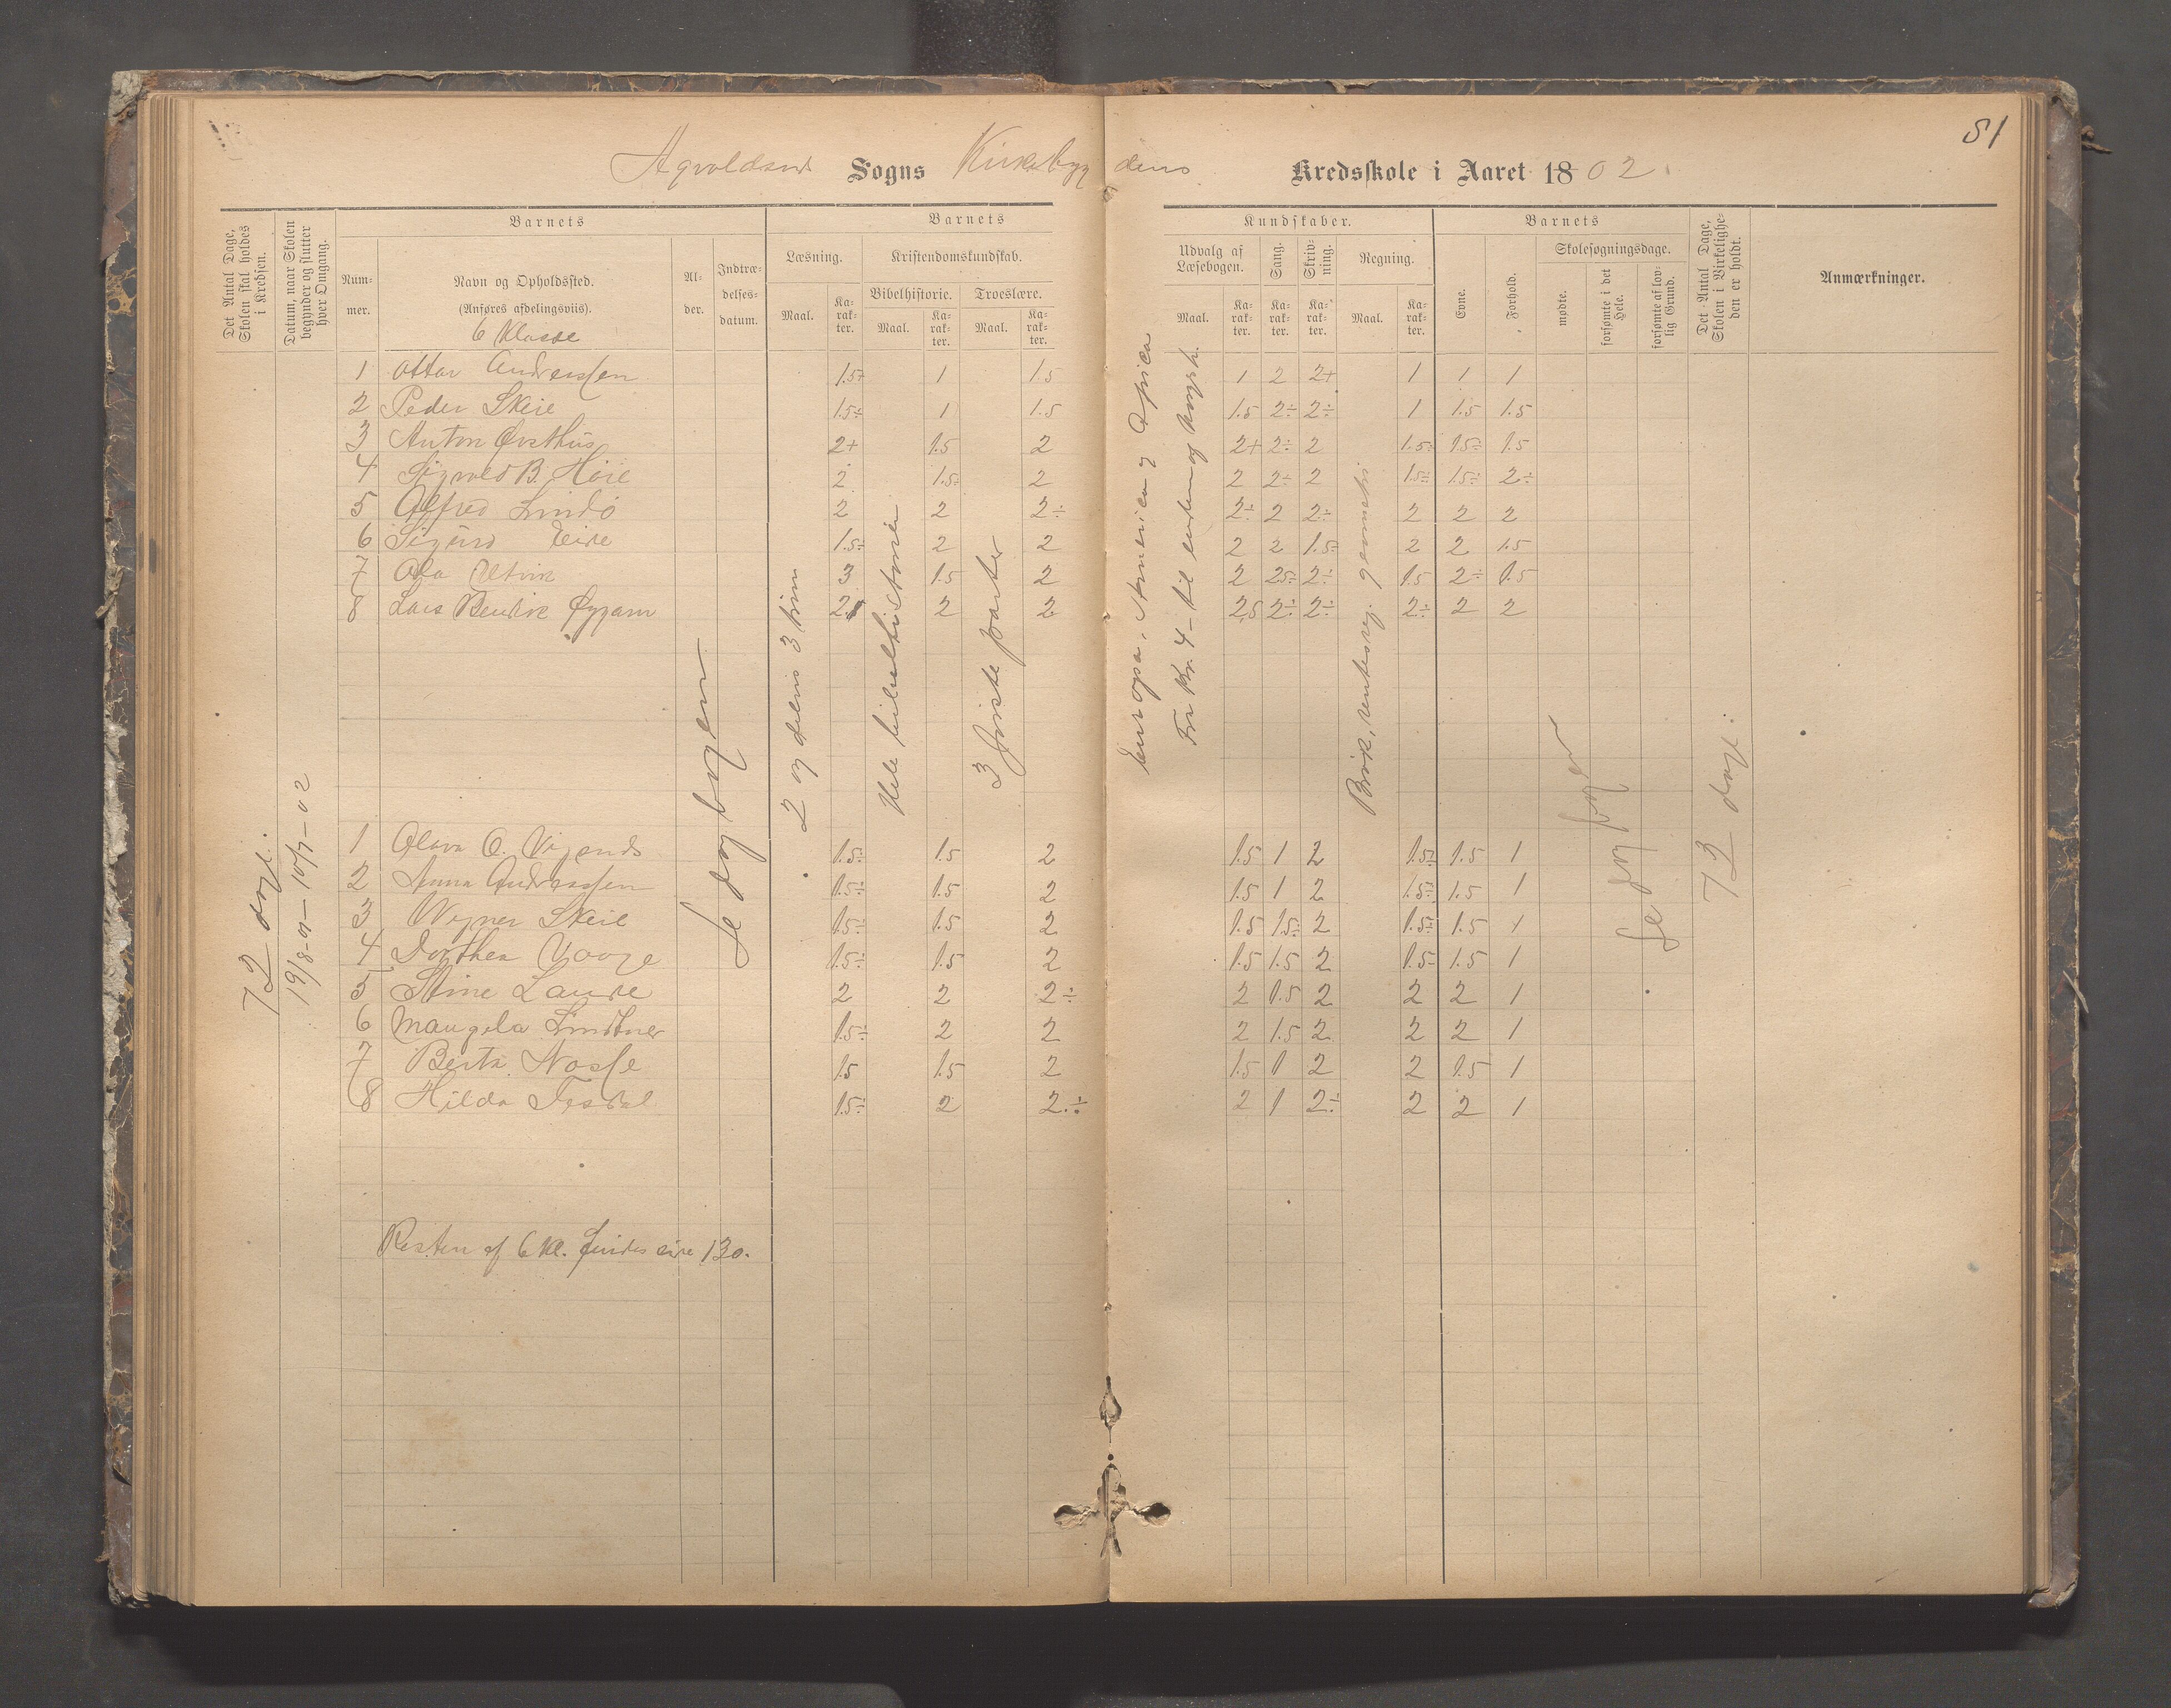 81
Sogns Kirkebygdens Kredsskole i Aaret 1802
Det Antal Dage, Skolen skal holdes i Kredsen.
Datum, naar Skolen begynder og slutter hver Omgang.
Barnets
Nummer.
Navn og Opholdssted.
(Anføres afdelingsviis).
6 Klasse
Alder.
Indtrædelsesdatum.
Barnets
Læsning.
Maal.
Karakter.
Kristendomskundskab.
Bibelhistorie.
Maal.
Karakter.
Troeslære.
Maal.
Karakter.
Kundskaber.
Udvalg af Læsebogen.
Maal.
Karakter.
Sang.
Karakter.
Skrivning.
Karakter.
Regning.
Maal.
Karakter.
Barnets
Evne.
Forhold.
Skolesøgningsdage.
mødte.
forsømte i det Hele.
forsømte af lovlig Grund.
Det Antal Dage, Skolen i Virkeligheden er holdt.
Anmærkninger.
1 Ottar Andreassen 1.5+ 1 1.5 1 2 2+ 1 1 1
2 Peder Skeie 1.5÷ 1 1.5 1.5 2÷ 2÷ 1 1.5 1.5
3 Anton Østhus 2+ 1.5 2 2+ 2÷ 2 1.5÷ 1.5÷ 1.5
4 Sigvald B. Høie 2 1.5÷ 2 2 2÷ 2 1.5÷ 1.5÷ 2÷
5 Alfred Lindø 2 2 2÷ 2÷ 2 2÷ 2 2 2
6 Sigurd Eike 1.5÷ 2 2 2 2 1.5÷ 2 2 1.5
7 Ola Utvik 3 1.5 2 2 2.5÷ 2÷ 1.5 2÷ 1.5
8 Lars Bendik 2 2 2.5 2÷ 2÷ 2÷ 2 2
72 dage.
19/8-01-10/7-02
Se dagbogen
2 og delvis 3 trin
Hele bibelhistorien
3 første parter
Europa, Amerika og Afrika
Fra Kr. 4 - til enden og
Brøk, rentesreg. geometri
Se dagbogen
72 dage.
1 Olava O. Vigands 1.5÷ 1.5 2 1.5 1 2 1.5÷ 1.5 1
2 Anna Andreassen 1.5÷ 1.5 2 1.5 1 2 1.5÷ 1.5 1
3 Skeie 1.5÷ 1.5 2 1.5 1.5÷ 2 1.5÷ 1.5 1
4 Dorthea Vaage 1.5÷ 1.5 2 1.5 1.5 2 1.5÷ 1.5 1
5 Stine Lande 2 2 2÷ 2 1.5 2 2 2 1
6 Lindtner 1.5÷ 2 2 2 1.5 2 2 2 1
7 Berta Nosse 1.5 1.5 2 1.5 1 2 2 1.5 1
8 Hilda Tesdal 1.5÷ 2 2÷ 2 1 2÷ 2 2 1
Resten af 6 kl. findes side 130.